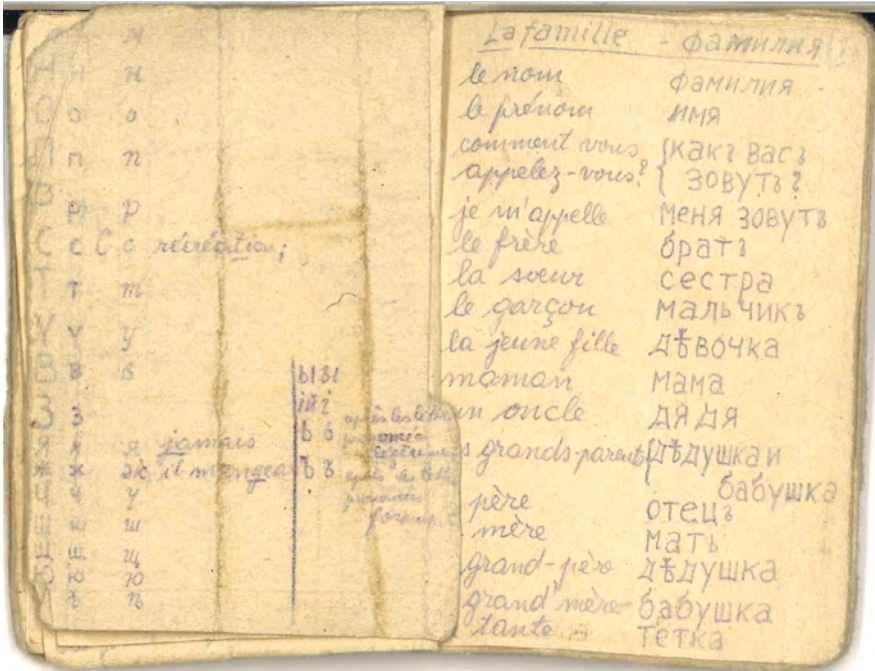 м
н н
о о
п п
р р
с С с récréation;
т т
у у
в в
ы ы
з
ь ь après les lettres
я jamais
ж ж il mangea ъ ъ après les
prononcer
ч ч
ш ш
щ щ
ю ю
ъ
La famille - фамилия
le nom фамилия
le prénom имя
comment vous {какъ васъ
appelez-vous? { зовутъ?
je m'appelle меня зовутъ
le frère братъ
la soeur сестра
le garçon мальчикъ
la jeune fille дѣвочка
maman мама
un oncle дядя
s grands-parents {дѣдушка и
бабушка
père отецъ
mère мать
grand-père дѣдушка
grand'mère бабушка
tante тетка